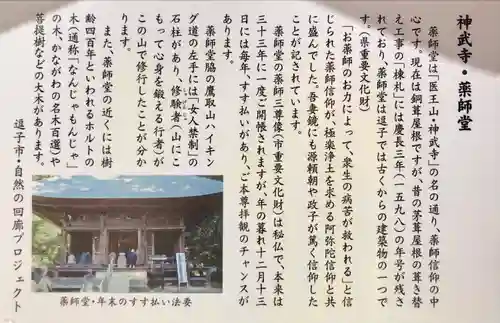 神武寺・薬師堂
薬師堂は「医王山・神武寺」の名の通り、薬師信仰の中
心です。現在は銅葺屋根ですが、昔の茅葺屋根の葺き替
え工事の「棟札」には慶長三年(一五九八)の年号が残さ
れており、薬師堂は逗子では古くからの建築物の一つで
す。(県重要文化財)
「お薬師のお力によって、衆生の病苦が救われる」と信
じられた薬師信仰が、極楽浄土を求める阿弥陀信仰と共
に盛んでした。吾妻鏡にも源頼朝や政子が篤く信仰した
ことが記されています。
薬師堂の薬師三尊像(市重要文化財)は秘仏で、本来は
三十三年に一度ご開帳されますが、年の暮れ十二月十三
日には毎年、すす払いがあり、ご本尊拝観のチャンスが
あります。
薬師堂脇の鷹取山ハイキン
グ道の左手には「女人禁制」の
石柱があり、修験者(山にこ
もって心身を鍛える行者)が
この山で修行したことが分か
ります。
また、薬師堂の近くには樹
齢四百年といわれるホルトの
木(通称「なんじゃもんじゃ」
の木、かながわの名木百選)や
菩提樹などの大木があります。
逗子市・自然の回廊プロジェクト
薬師堂・年末のすす払い法要